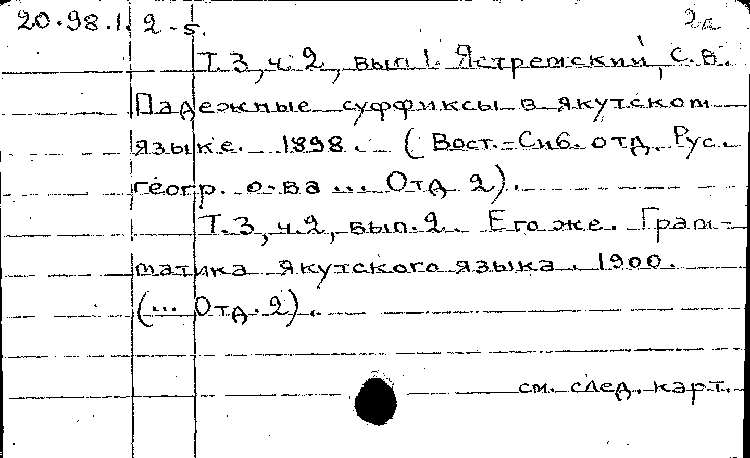 20.98.1. 2-5. 2а
Т.3, ч.2, вып 1. Ястремский, С.В.
Падежные суффиксы в якутском
языке. 1898. (Вост.-Сиб. отд. Рус.
геогр. о-ва ... Отд 2).
Т.3, ч.2, вып.2. Его же. Грам-
матика якутского языка. 1900.
(... Отд. 2).
см. след. карт.